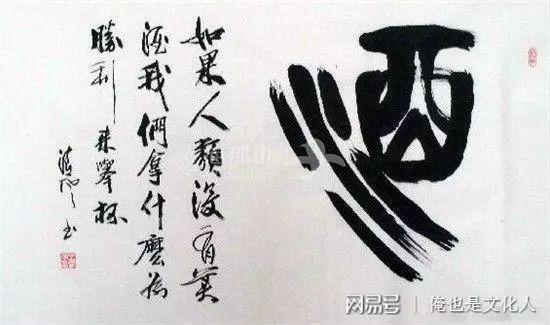 酒
如果人類沒有美
酒我們拿什麼為
勝利来舉杯
网易号 | 俺也是文化人